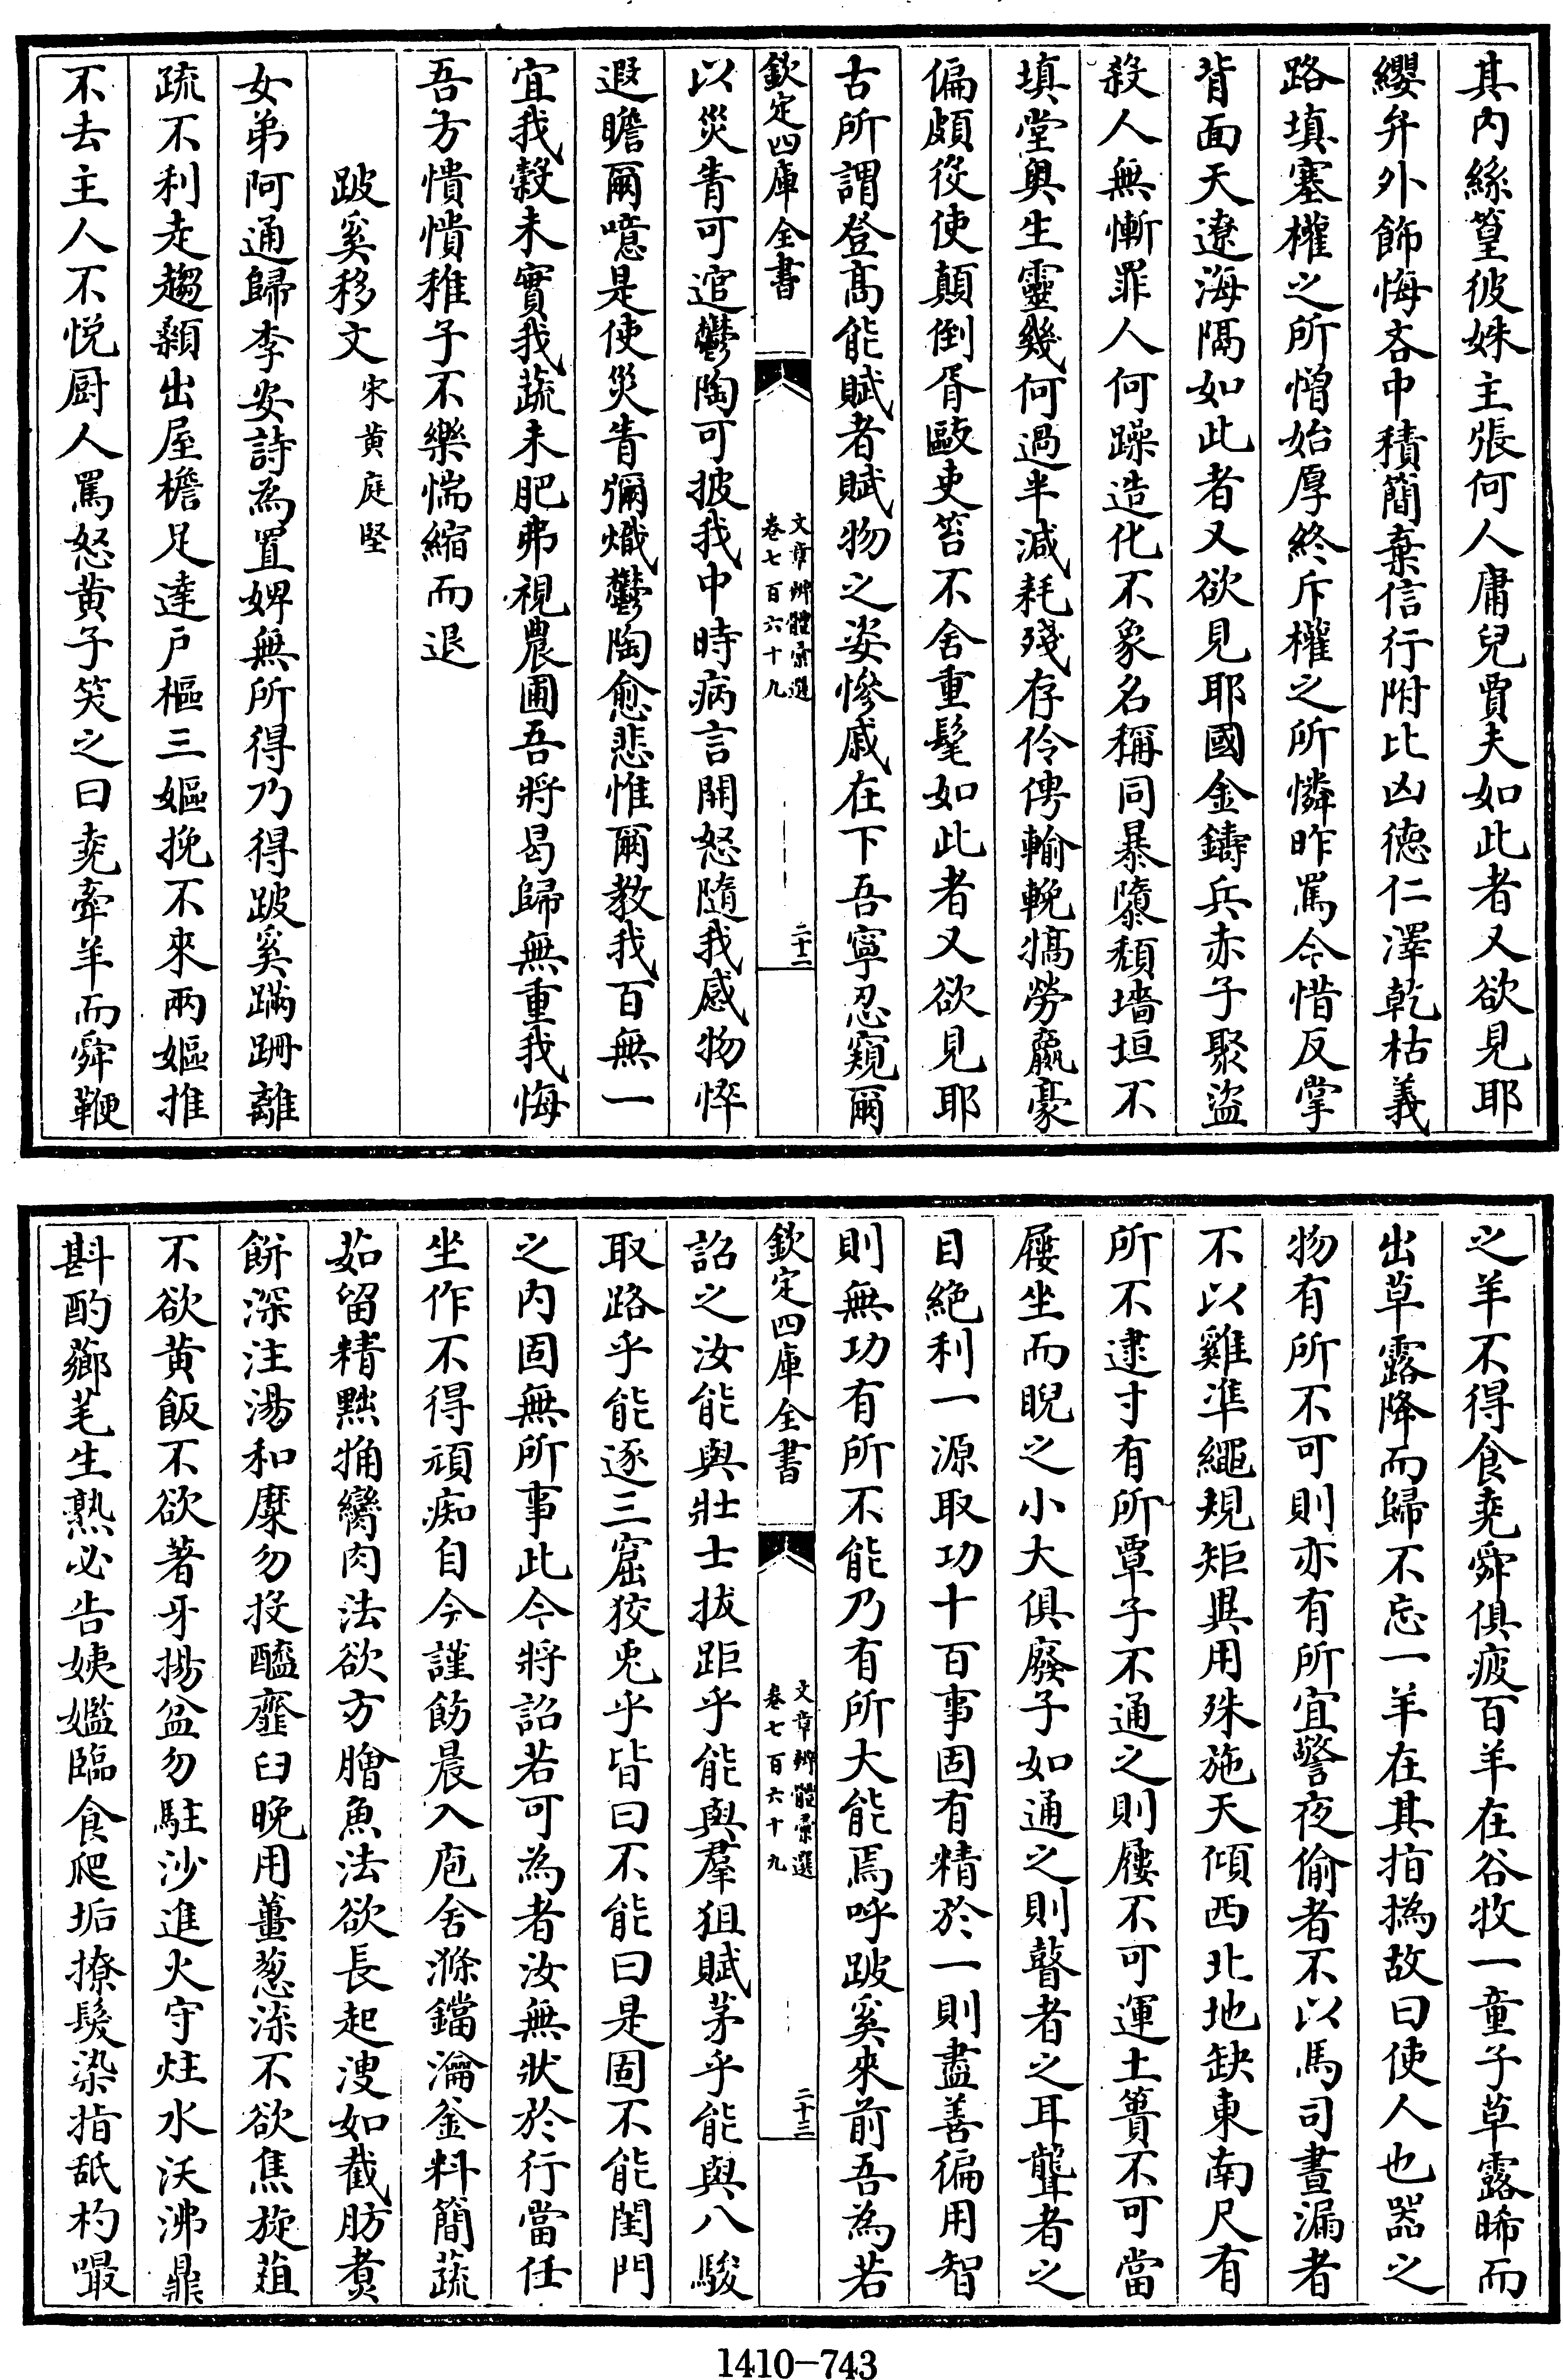 其内絲篁彼姝主張何人庸兒賈夫如此者又欲見耶
纓弁外飾悔吝中積簡棄信行附比凶德仁澤乾枯義
路填塞權之所憎始厚終斥權之所憐昨罵今惜反掌
背面天遼海隔如此者又欲見耶國金鑄兵赤子聚盜
殺人無慚罪人何躁造化不象名稱同暴隳頹墻垣不
填堂奥生靈幾何過半減耗殘存伶俜輸輓犒勞羸豪
偏頗役使顛倒胥毆吏笞不舍重髦如此者又欲見耶
古所謂登髙能賦者賦物之姿慘戚在下吾寧忍窺爾
欽定四庫全書
文章辨體彚選
卷七百六十九
二十二
以災眚可逭鬱陶可披我中時病言開怒隨我感物悴
遐瞻爾噫是使災眚彌熾鬱陶愈悲惟爾教我百無一
宜我穀未實我蔬未肥弗視農圃吾將曷歸無重我悔
吾方憒憒稚子不樂惴縮而退
跛奚移文 宋黄庭堅
女弟阿通歸李安詩為置婢無所得乃得跛奚蹣跚離
疏不利走趨顙出屋檐足達户樞三嫗挽不來兩嫗推
不去主人不悦厨人罵怒黄子笑之曰堯牽羊而舜鞭
之羊不得食堯舜俱疲百羊在谷牧一童子草露晞而
出草露降而歸不忘一羊在其指撝故曰使人也器之
物有所不可則亦有所宜警夜偷者不以馬司晝漏者
不以雞凖繩規矩異用殊施天傾西北地缺東南尺有
所不逮寸有所覃子不通之則屨不可運土簣不可當
屨坐而睨之小大俱廢子如通之則瞽者之耳聾者之
目絶利一源取功十百事固有精於一則盡善徧用智
則無功有所不能乃有所大能焉呼跛奚來前吾為若
欽定四庫全書
文章辨體彚選
卷七百六十九
二十三
詔之汝能與壯士拔距乎能與羣狙賦茅乎能與八駿
取路乎能逐三窟狡兎乎皆曰不能曰是固不能閨門
之内固無所事此今將詔若可為者汝無狀於行當任
坐作不得頑痴自今謹飭晨入庖舍滌鐺瀹釜料簡蔬
茹留精黜捔臠肉法欲方膾魚法欲長起溲如截肪煑
餅深注湯和糜勿投醯齏臼晩用薑葱渫不欲焦旋葅
不欲黄飯不欲著牙揚盆勿駐沙進火守炷水沃沸鼎
斟酌薌芼生熟必告姨㜮臨食爬垢撩髮染指舐杓嘬
1410-743